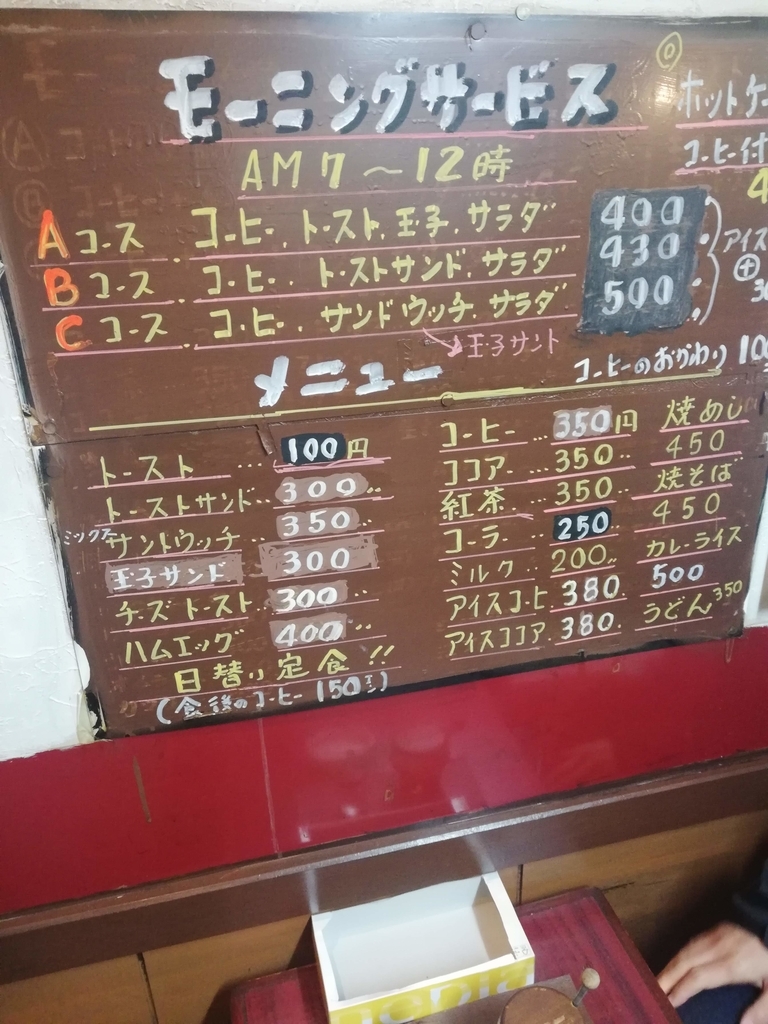 モーニングサービス
AM7〜12時
Aコース コーヒー、トースト、玉子、サラダ 400
Bコース コーヒー、トーストサンド、サラダ 430
Cコース コーヒー、サンドウッチ、サラダ 500
玉子サンド
アイス
⊕
ホットケー
コーヒー付
コーヒーのおかわり 100
メニュー
トースト … 100円
トーストサンド 300〃
ミックスサンドウッチ 350〃
玉子サンド 300
チーズトースト 300〃
ハムエッグ 400〃
日替り定食!!
(食後のコーヒー150エン)
コーヒー … 350円
ココア … 350〃
紅茶 … 350〃
コーラ … 250〃
ミルク … 200〃
アイスコーヒ 380〃
アイスココア 380〃
焼めし
450
焼そば
450
カレーライス
500
うどん 350